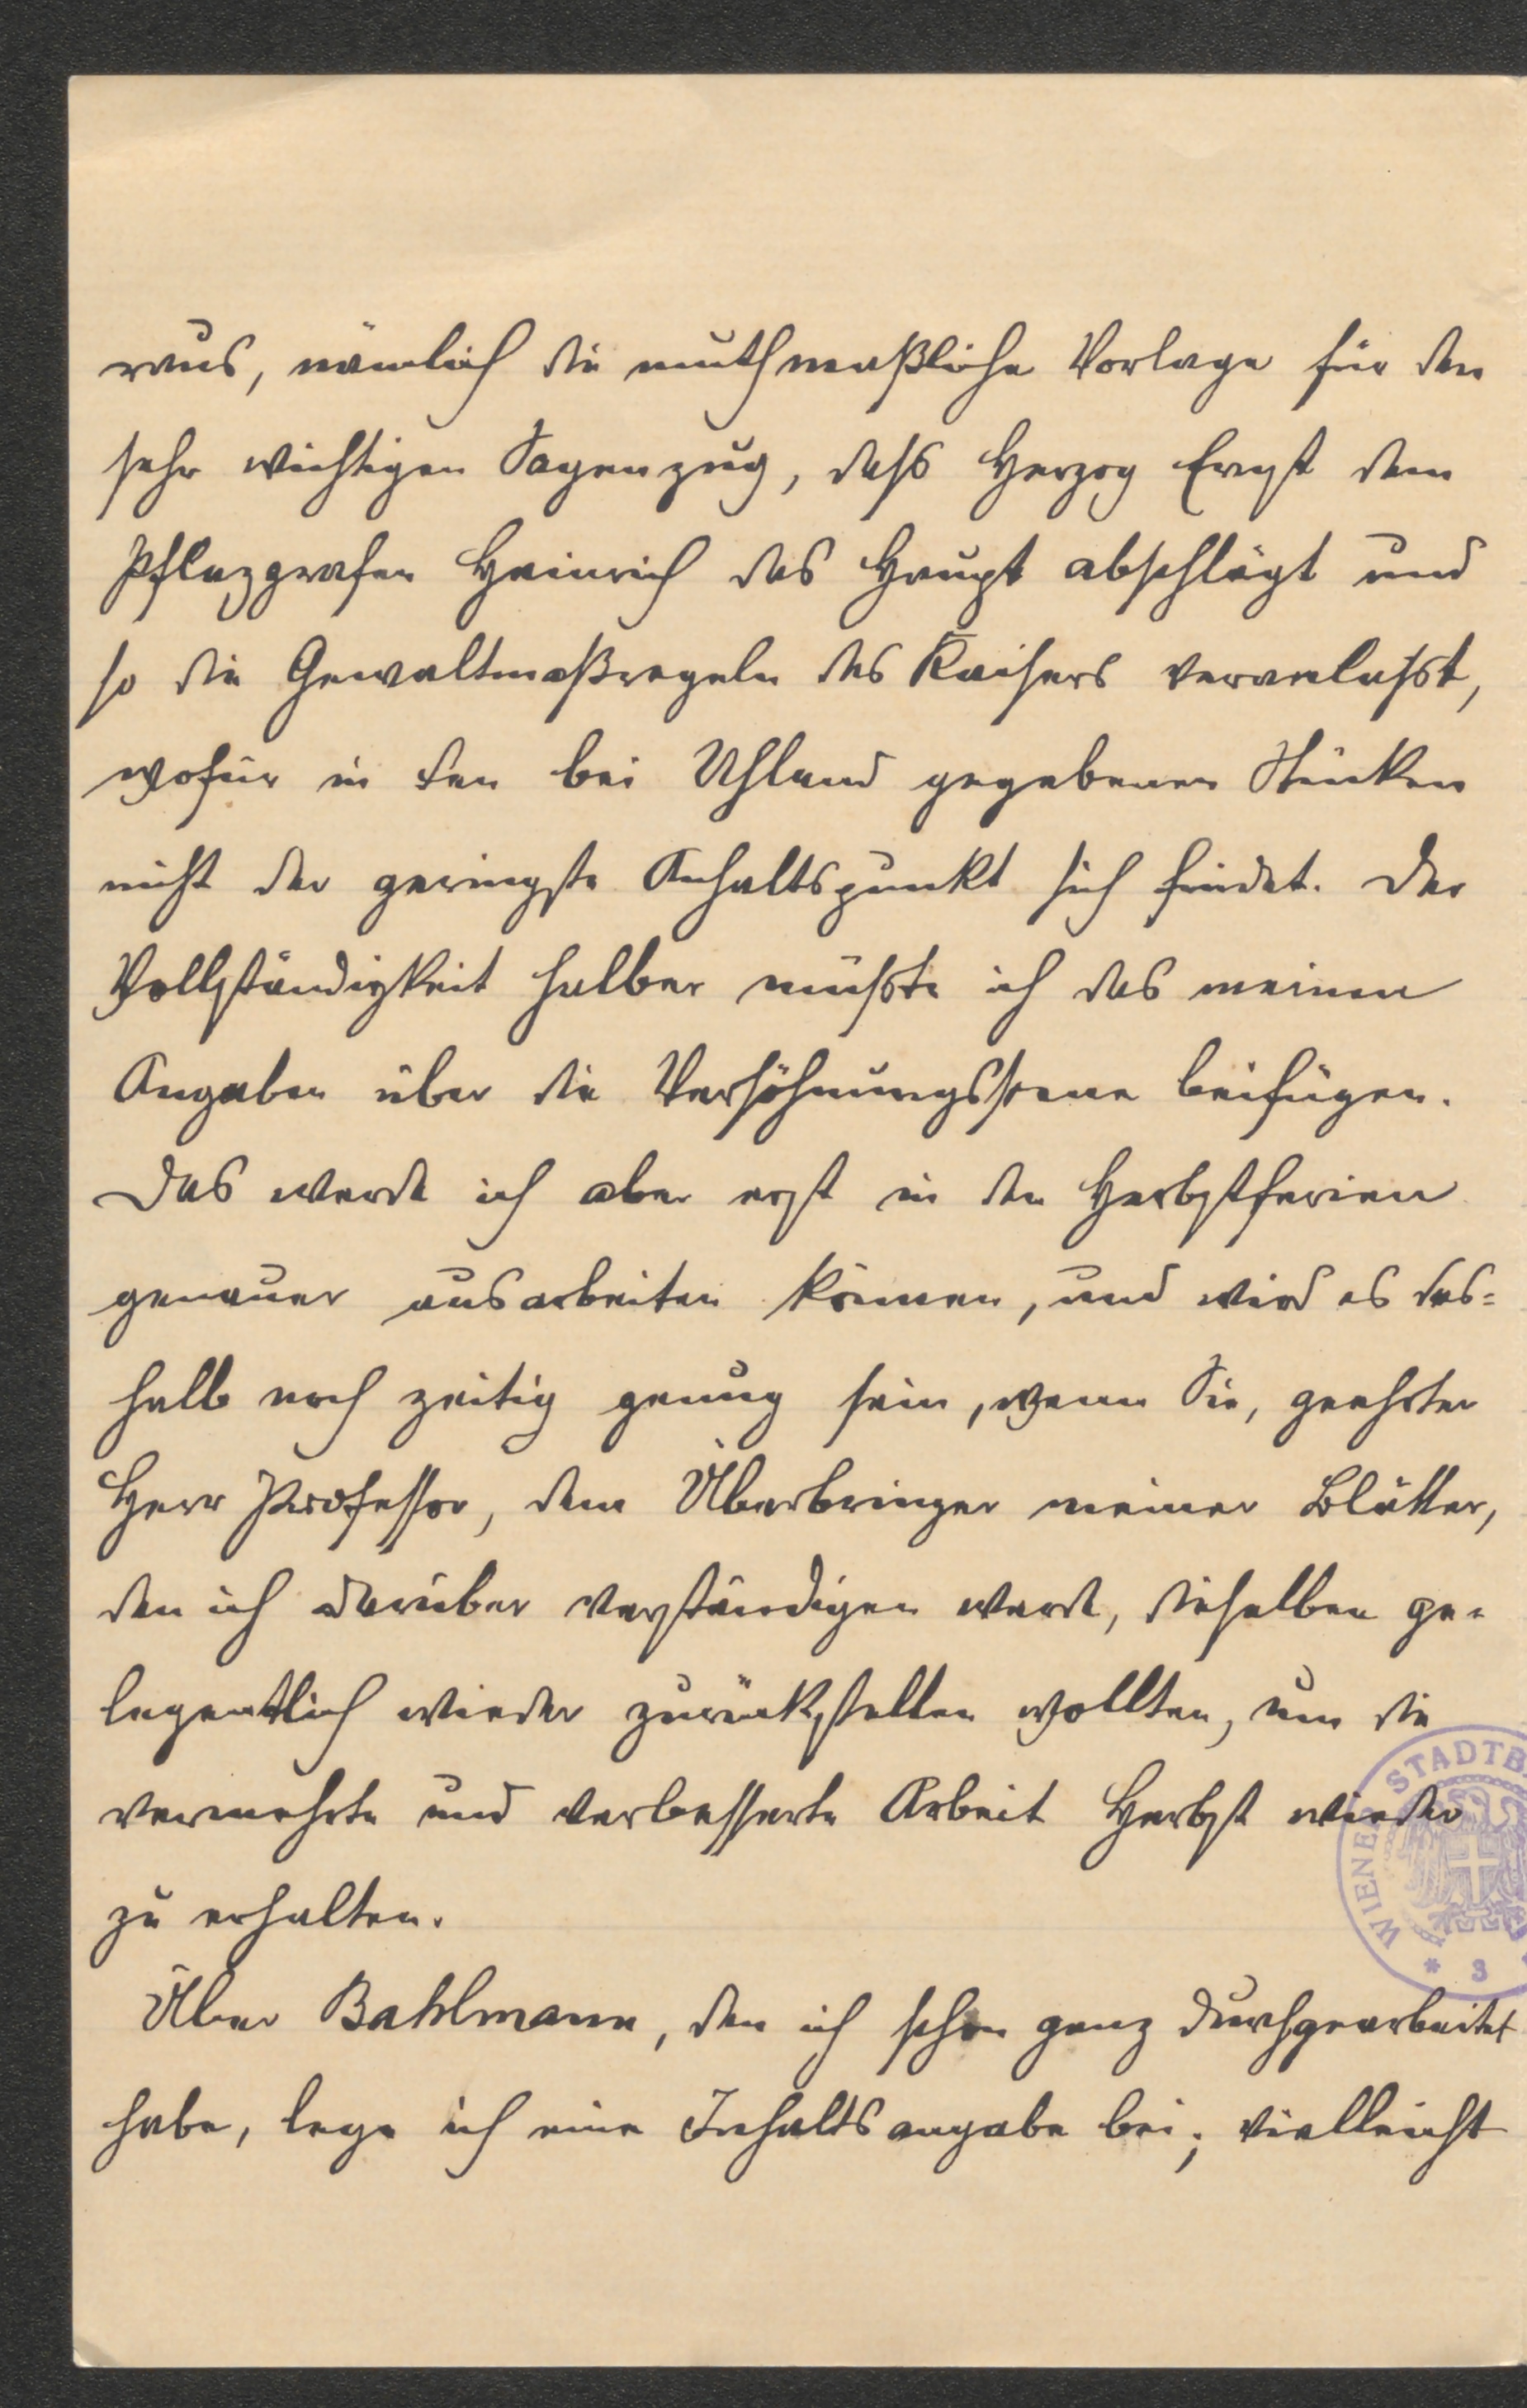 raus, nämlich die muthmaßliche Vorlage für den
sehr wichtigen Sagenzug, dass Herzog Ernst dem
Pfalzgrafen Heinrich das Haupt abschlägt und
so die Gewaltmaßregeln des Kaisers veranlasst,
wofür in den bei Uhland gegebenen Stücken
nicht der geringste Anhaltspunkt sich findet. Der
Vollständigkeit halber müsste ich das meinen
Angaben über die Versöhnungsscene beifügen.
Das werde ich aber erst in den Herbstferien
genauer ausarbeiten können, und wird es des=
halb noch zeitig genug sein, wenn Sie, geehrter
Herr Professor, dem Überbringer meiner Blätter,
den ich darüber verständigen werde, dieselben ge=
legentlich wieder zurückstellen wollten, um die
vermehrte und verbesserte Arbeit Herbst wieder
zu erhalten.
Über Bahlmann, den ich schon ganz durchgearbeitet
habe, lege ich eine Inhaltsangabe bei; vielleicht
WIENER STADTB
* 3